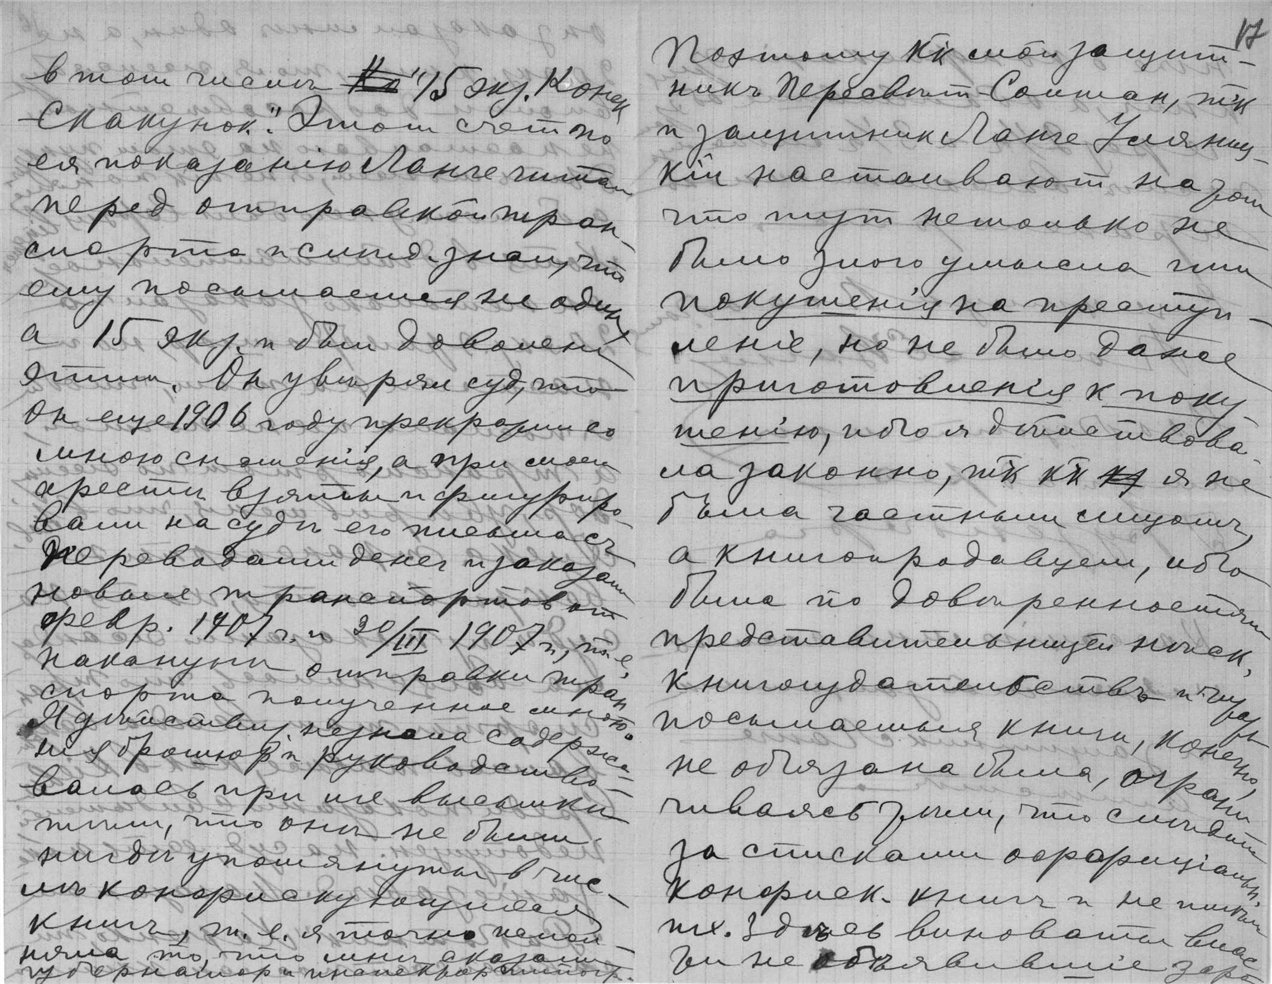 в том числѣ "15 экз. Конек
Скакунок". Этот счет по
ея показанію Ланге читал
перед отправкой тран-
спорта и слѣд. знал, что
ему посылается не один,
а 15 экз. и был доволен
этим. Он увѣрял суд, что
он еще 1906 году прекратил со
мною сношенія, а при моем
арестѣ взяты и фигуриро-
вали на судѣ его письма съ
переводами денег и заказами
новых транспортов от
февр. 1907 г. и 20/III 1907 г., т.е.
наканунѣ отправки тран-
спорта полученное мною.
Я дѣйствит. не знала содержа-
нія брошюр и руководство-
валась при их высылкѣ
тѣм, что они не были
нигдѣ упомянуты в чис-
лѣ конфискующихся
книг, т.е. я точно испол-
няла то, что мнѣ сказали
губернатор и инспектор типогр.
17
Поэтому кк мой защит-
никъ Пересвѣт-Солтан, тк
и защитник Ланге Уляниц-
кій настаивают на том
что тут не только не
было злого умысла или
покушенія на преступ-
леніе, но не было даже
приготовленія к поку
шенію, ибо я дѣйствова-
ла законно, тк кк я не
была частным лицом,
а книгопродавцем, ибо
была по довѣренностям
представительницей нѣск.
книгоиздательствъ и
посылаемыя книги, конечно,
не обязана была, ограни
чиваясь тѣм, что слѣдить
за списками оффиціальн.
конфиск. книг и не
их. Здѣсь виноваты влас
ти не объявившіе